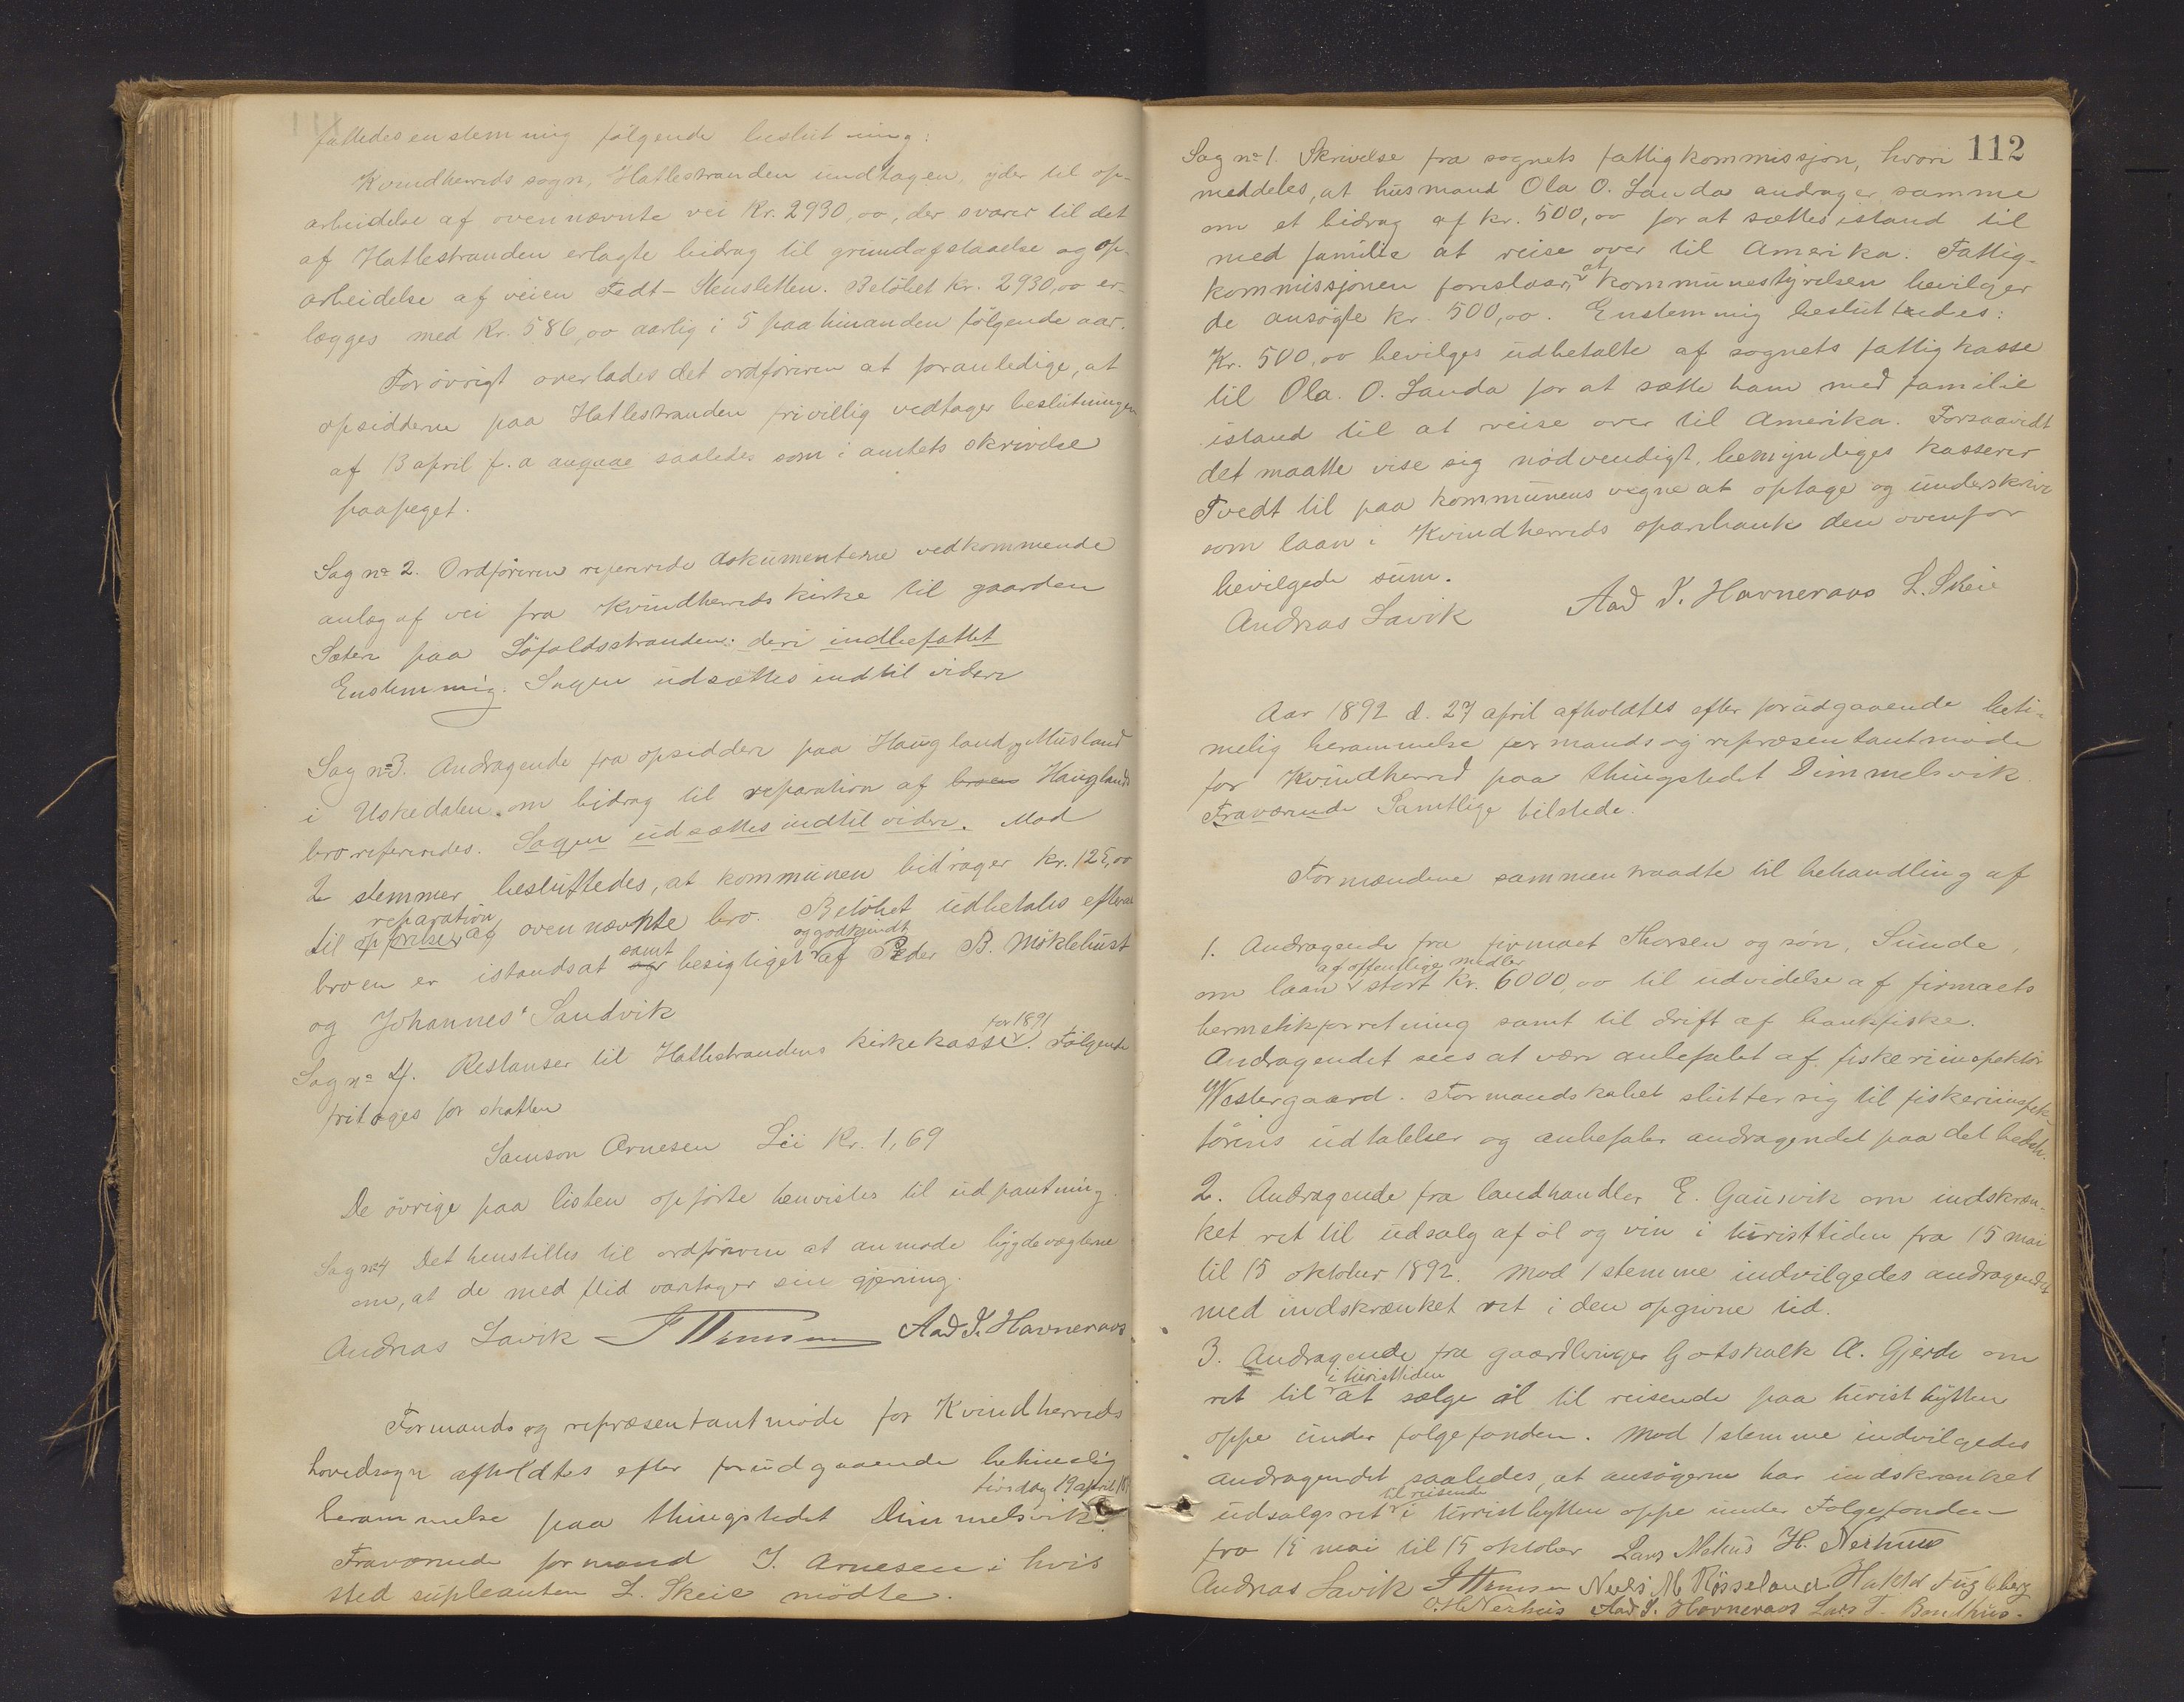 fattedes enstemmig følgende beslutning:
Kvindherreds sogn, Hatlestranden undtagen, yder til op-
arbeidelse af ovennævnte vei Kr. 2930,00, der svarer til det
af Hatlestranden erlagte bidrag til grundafstaaelse og op-
arbeidelse af veien Tedt - Stensletten. Beløbet Kr. 2930,00 er-
lægges med Kr. 586,00 aarlig i 5 paa hinanden følgende aar.
Forøvrigt overlades det ordføreren at foranledige, at
opsidderne paa Hatlestranden frivillig vedtager beslutningen
af 13 april f. a saaledes som i amtets skrivelse
paapeget.
Sag no 2. Ordføreren refererede dokumenterne vedkommende
anlæg af vei fra Kvindherreds kirke til gaarden
Sæter paa Løfaldsstranden. deri indbefattet
Enstemmig. Sagen udsættes indtil videre
Sag no 3. Andragende fra opsiddere paa Haugland og Musland
i Uskedalen om bidrag til reparation af broen Hauglands
bro refereredes. Sagen udsættes indtil videre. Mod
2 stemmer besluttedes, at kommunen bidrager Kr. 125,00
reparation
til opførelse af ovennævnte bro. Beløbet udbetales efterat
samt og godkjendt
broen er istandsat og besigtiget af Peder B. Møklebust
og Johannes Sandvik
for 1891
Sag no 4. Restanser til Hatlestrandens kirkekasse. Følgende
fritages for skatten
Samson Arnesen Lii Kr. 1,69
De øvrige paa listen opførte henvistes til udpantning.
Sag no 4 Det henstilles til ordføreren at anmode bygdevægterne
om, at de med flid varetager sin gjerning.
Andreas Lavik Aad J. Havneraas
Formands og repræsentantmøde for Kvindherreds
hovedsogn afholdtes efter forudgaaende betimelig
tirsdag 19 april
berammelse paa thingstedet Dimmelsvik.
Fraværende formand J. Arnesen i hvis
sted supleanten L. Skeie mødte.
112
Sag no 1. Skrivelse fra sognets fattigkommissjon, hvori
meddeles, at husmand Ola O. Landa andrager samme
om et bidrag af Kr. 500,00 for at sættes istand til
med familie at reise over til Amerika. Fattig-
at
kommissjonen foreslaar, kommunestyrelsen bevilger
de ansøgte Kr. 500,00. Enstemmig besluttedes:
Kr. 500,00 bevilges udbetalte af sognets fattigkasse
til Ola. O. Landa for at sætte ham med familie
istand til at reise over til Amerika. Forsaavidt
det maatte vise sig nødvendigt, bemyndiges kasserer
Tvedt til paa kommunens vegne at optage og underskrive
som laan i Kvindherreds sparebank den ovenfor
bevilgede sum.
Andreas Lavik Aad J. Havneraas L. Skeie
Aar 1892 d. 27 april afholdtes efter forudgaaende beti-
melig berammelse formands og repræsentantmøde
for Kvindherred paa thingstedet Dimmelsvik.
Fraværende Samtlige tilstede.
Formændene sammentraadte til behandling af
1. Andragende fra firmaet Thorsen og søn, Sunde,
af offentlige midler
om laan stort Kr. 6000,00 til udvidelse af firmaets
hermetikforretning samt til drift af bankfiske.
Andragendet sees at være anbefalet af fiskeriinspektør
Westergaard. Formandskabet slutter sig til fiskeriinspek-
tørens udtalelser og anbefaler andragendet paa det bedste.
2. Andragende fra landhandler E. Gausvik om indskræn-
ket ret til udsalg af øl og vin i turisttiden fra 15 mai
til 15 oktober 1892. Mod 1 stemme indvilgedes andragendet
med indskrænket ret i den opgivne tid.
3. Andragende fra gaardbruger Gotskalk A. Gjerde om
i turisttiden
ret til at sælge øl til reisende paa turisthytten
oppe under folgefonden. Mod 1 stemme indvilgedes
andragendet saaledes, at ansøgeren har indskrænket
til reisende
udsalgsret i turisthytten oppe under Folgefonden
fra 15 mai til 15 oktober Lars Mehus H. Nerhus
Andreas Lavik Neels M Røsseland Haktor Fugleberg
O. H. Nerhus Aad J. Havneraas Lars T. Bondhus.